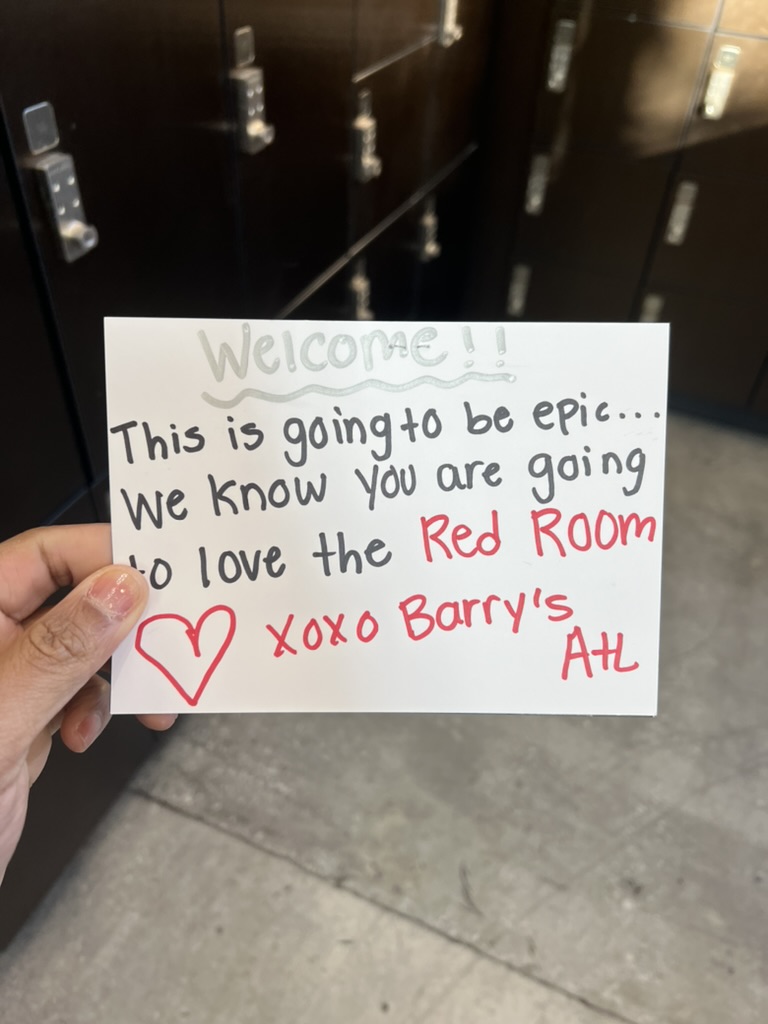 Welcome!!
This is going to be epic...
We know you are going
to love the Red Room
xoxo Barry's
AtL